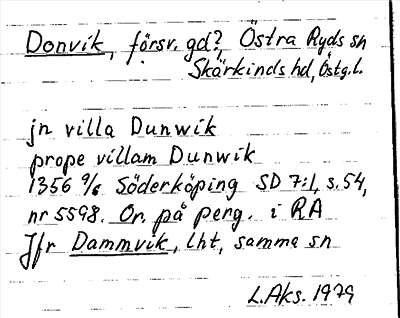 Donvik, försv. gd?, Östra Ryds sn
Skärkinds hd, Östg.l.
jn villa Dunwik
prope villam Dunwik
1356 9/6 Söderköping SD 7:1, s. 54,
nr 5598. Or. på perg. i RA
Jfr Dammvik, lht, samma sn
L.Aks. 1979